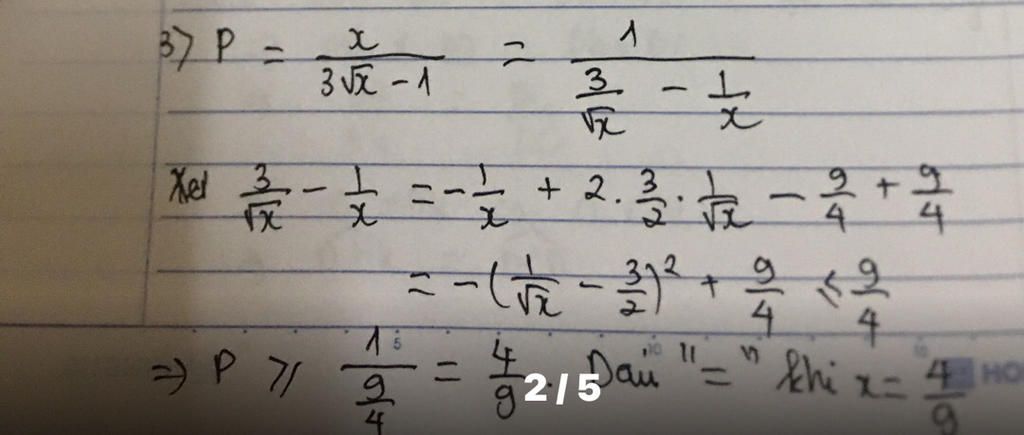 3) P = x/(3√x - 1) = 1/(3/√x - 1/x)
Xét 3/√x - 1/x = -1/x + 2 . 3/2 . 1/√x - 9/4 + 9/4
= -(1/√x - 3/2)² + 9/4 ≤ 9/4
⇒ P ≥ 1/(9/4) = 4/9. Dấu "=" khi x = 4/9
2/5
5 10 15
HO